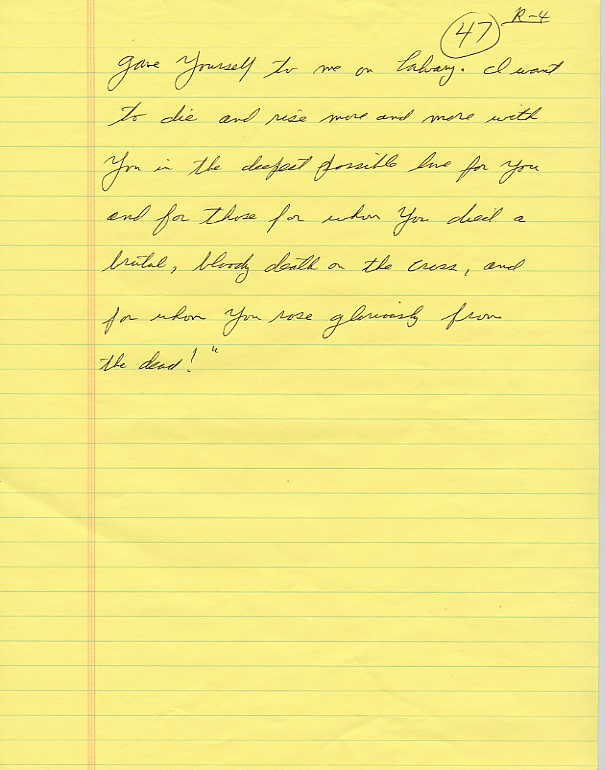 47 R-4
gave Yourself to me on Calvary. I want
to die and rise more and more with
You in the deepest possible love for You
and for those for whom You died a
brutal, bloody death on the cross, and
for whom You rose gloriously from
the dead!"